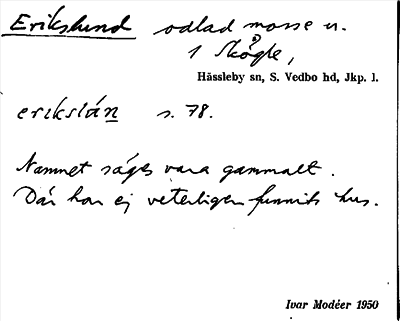 Erikslund odlad mosse u.
1 Skögle,
Hässleby sn, S. Vedbo hd, Jkp. l.
erikslán s. 78.
Namnet säges vara gammalt.
Där har ej veterligen funnits hus.
Ivar Modéer 1950